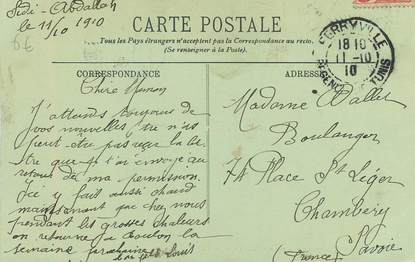 Sidi-Abdallah
le 11/10 1910
CARTE POSTALE
Tous les Pays étrangers n'acceptent pas la Correspondance au recto.
(Se renseigner à la Poste).
CORRESPONDANCE
Chère Maman
J'attends toujours de
vos nouvelles, tu n'as
peut-être pas reçu la let
tre que je t'ai envoyé au
retour de ma permission.
Ici y fait aussi chaud
maintenant que chez nous
pendant les grosses chaleurs
on retourne à Toulon la
semaine prochaine
Louis
ADRESSE
Madame Vallet
Boulanger
74 Place St Léger
Chambéry
Savoie
(France)
FERRYVILLE
18 10
11 -10
10
REGENCE TUNIS